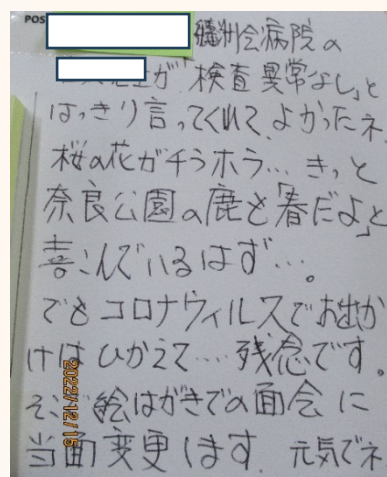 POS
洲会病院の
が「検査異常なし」と
はっきり言ってくれて、よかったネ.
桜の花がチラホラ… きっと
奈良公園の鹿も「春だよ」と
喜こんでいるはず…。
でもコロナウィルスでお出か
けは ひかえて… 残念です。
そこで絵はがきでの面会に
当面変更します. 元気でネ
2022/12/15